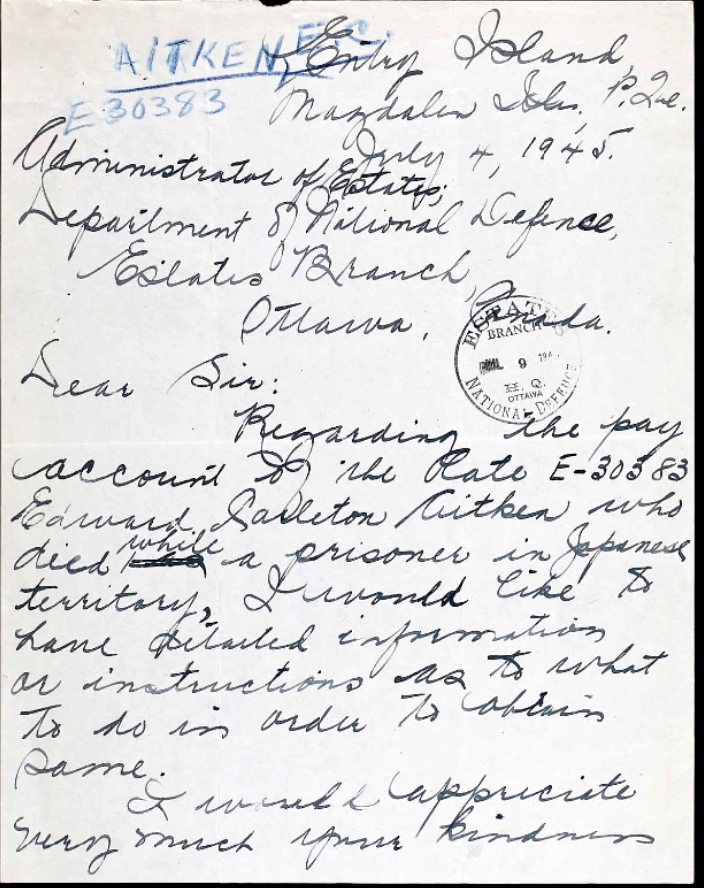 AITKEN, E.C.
E30383
Entry Island,
Magdalen Isls, P. Que.
July 4, 1945.
Administrator of Estates,
Department of National Defence,
Estates Branch,
Ottawa, Canada.
ESTATES
BRANCH
JUL 9 194
H. Q.
OTTAWA
NATIONAL DEFENCE
Dear Sir:
Regarding the pay
account of the late E-30383
Edward Carleton Aitken who
died while a prisoner in Japanese
territory, I would like to
have detailed information
or instructions as to what
to do in order to obtain
same.
I would appreciate
very much your kindness